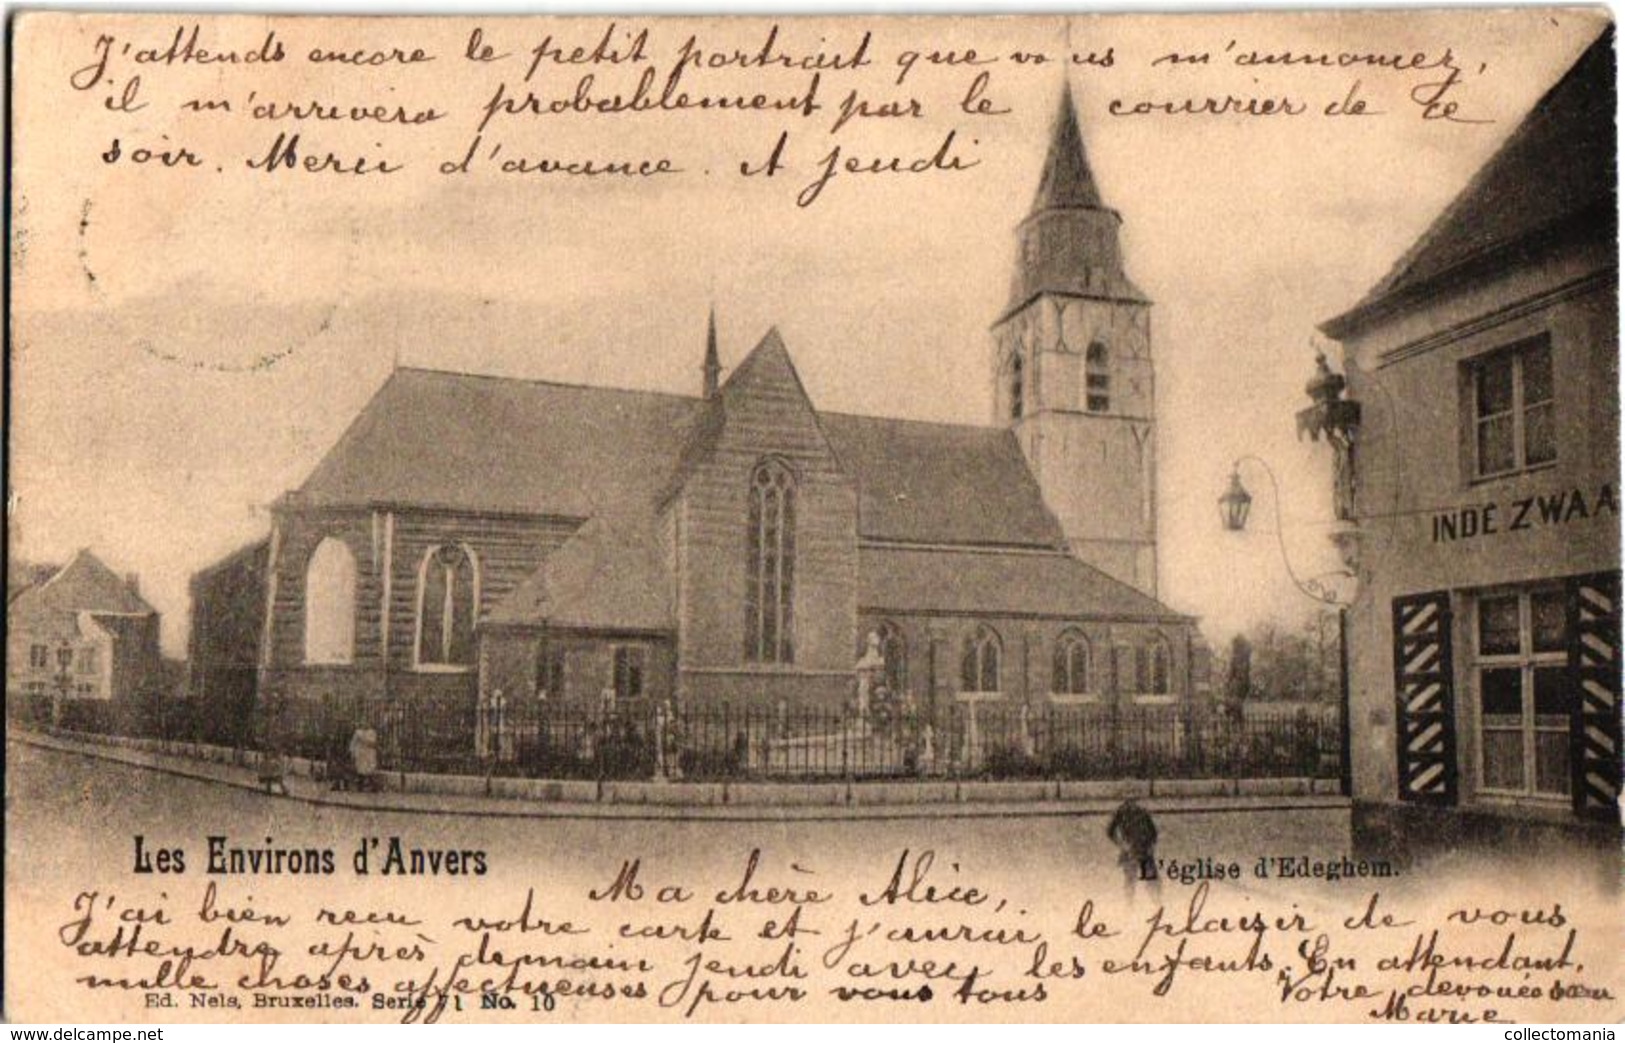 J'attends encore le petit portrait que vous m'annoncez,
il m'arrivera probablement par le courrier de ce
soir. Merci d'avance. A jeudi
INDE ZWAA
Les Environs d'Anvers
L'église d'Edeghem.
Ma chère Alice,
J'ai bien recu votre carte et j'aurai le plaisir de vous
attendre après demain jeudi avec les enfants. En attendant,
mille choses affectueuses pour vous tous
Votre devouée sœur
Marie
Ed. Nels, Bruxelles. Serie 71 No. 10
collectomania